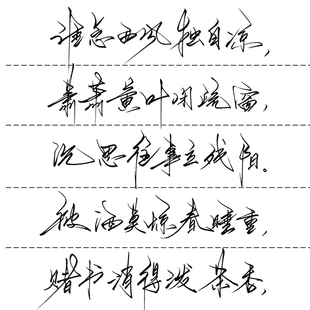 谁念西风独自凉，
萧萧黄叶闭疏窗，
沉思往事立残阳。
被酒莫惊春睡重，
赌书消得泼茶香，